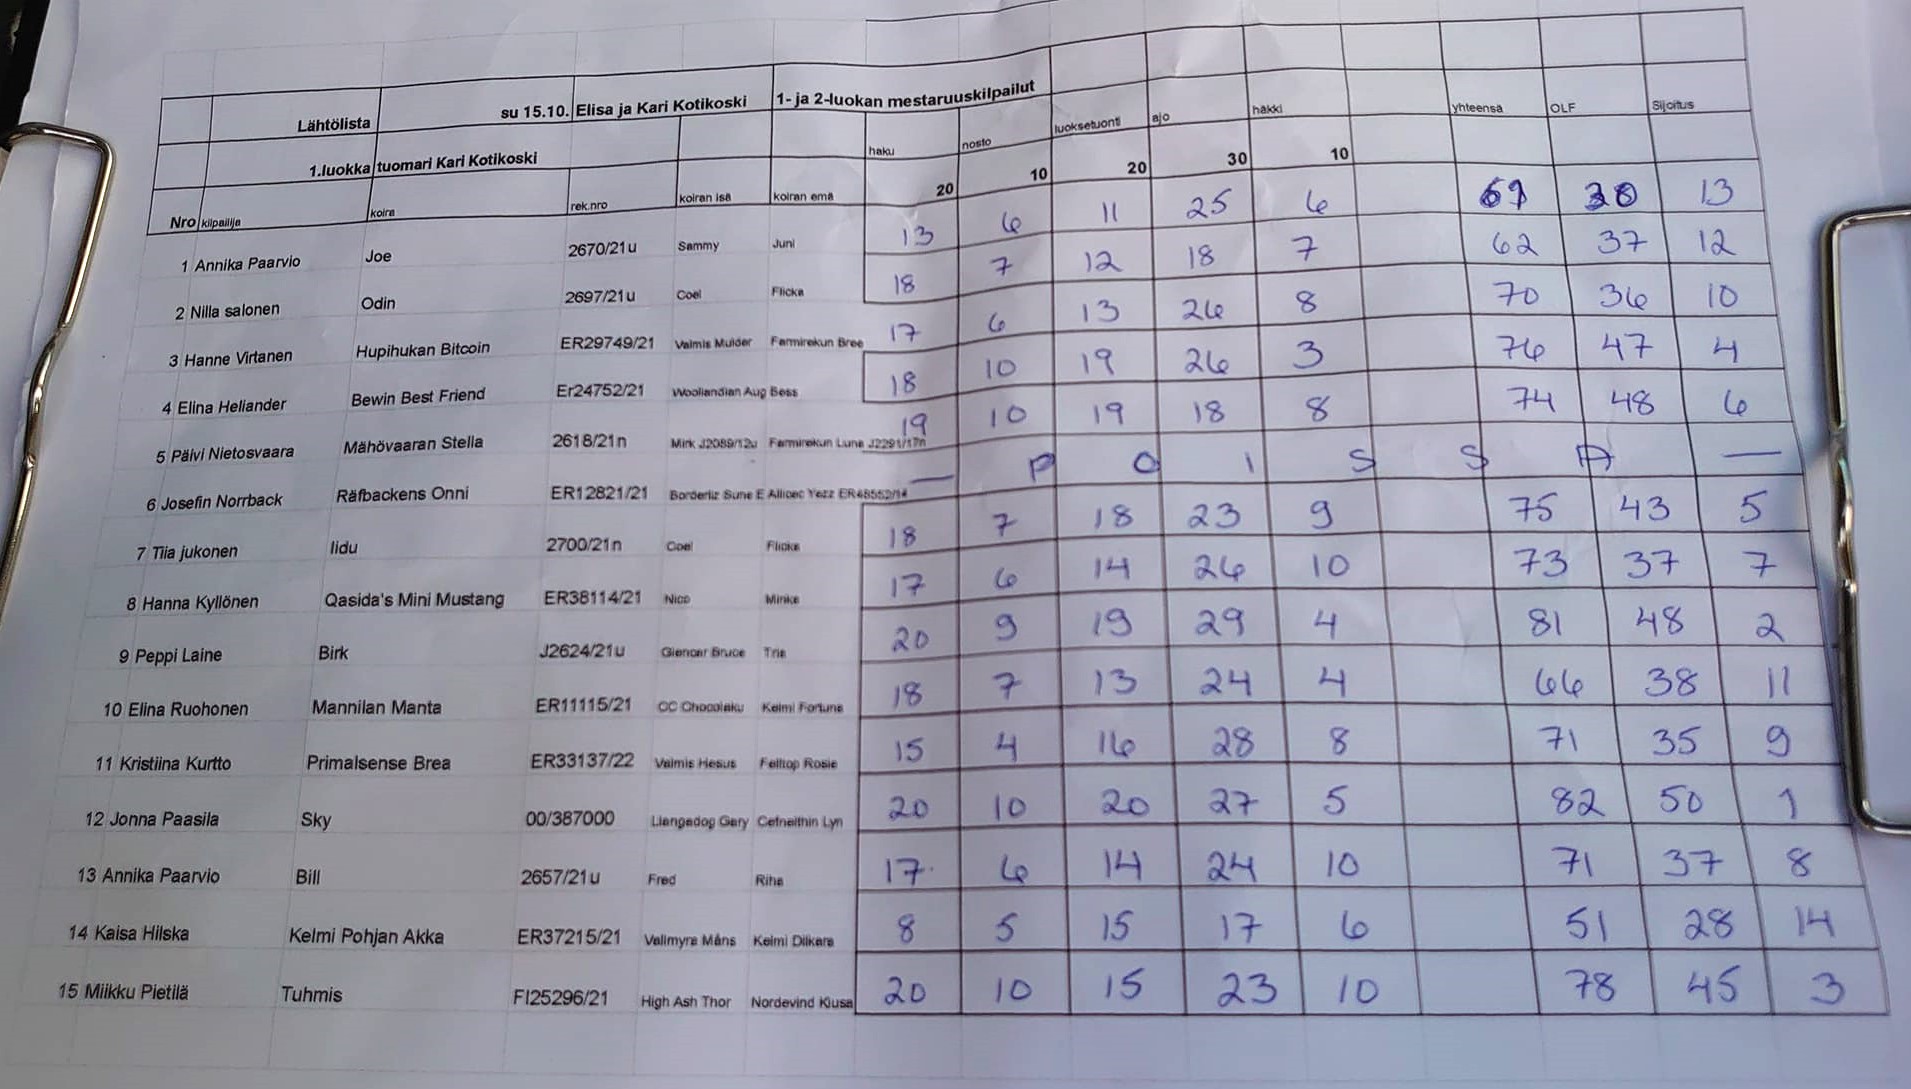 Lähtölista su 15.10. Elisa ja Kari Kotikoski 1- ja 2-luokan mestaruuskilpailut
1.luokka tuomari Kari Kotikoski haku nosto luoksetuonti ajo häkki yhteensä OLF Sijoitus
Nro kilpailija koira rek.nro koiran isä koiran emä 20 10 20 30 10
1 Annika Paarvio Joe 2670/21u Sammy Juni 13 6 11 25 6 61 30 13
2 Nilla salonen Odin 2697/21u Coel Flicka 18 7 12 18 7 62 37 12
3 Hanne Virtanen Hupihukan Bitcoin ER29749/21 Valmis Mulder Farmirekun Bree 17 6 13 26 8 70 36 10
4 Elina Heliander Bewin Best Friend Er24752/21 Wooliandian Aug Bess 18 10 19 26 3 76 47 4
5 Päivi Nietosvaara Mähövaaran Stella 2618/21n Mirk J2089/12u Farmirekun Luna J2291/17n 19 10 19 18 8 74 48 6
6 Josefin Norrback Räfbackens Onni ER12821/21 Borderliz Sune E Allicec Yezz — P O I S S A —
7 Tiia jukonen Iidu 2700/21n Coel Flicka 18 7 18 23 9 75 43 5
8 Hanna Kyllönen Qasida's Mini Mustang ER38114/21 Nico Minka 17 6 14 26 10 73 37 7
9 Peppi Laine Birk J2624/21u Glencar Bruce Tria 20 9 19 29 4 81 48 2
10 Elina Ruohonen Mannilan Manta ER11115/21 CC Chocolaku Kelmi Fortuna 18 7 13 24 4 66 38 11
11 Kristiina Kurtto Primalsense Brea ER33137/22 Valmis Hesus Felltop Rosie 15 4 16 28 8 71 35 9
12 Jonna Paasila Sky 00/387000 Llangadog Gary Cefneithin Lyn 20 10 20 27 5 82 50 1
13 Annika Paarvio Bill 2657/21u Fred Riha 17 6 14 24 10 71 37 8
14 Kaisa Hilska Kelmi Pohjan Akka ER37215/21 Vallmyra Måns Kelmi Diikara 8 5 15 17 6 51 28 14
15 Miikku Pietilä Tuhmis FI25296/21 High Ash Thor Nordevind Kiusa 20 10 15 23 10 78 45 3